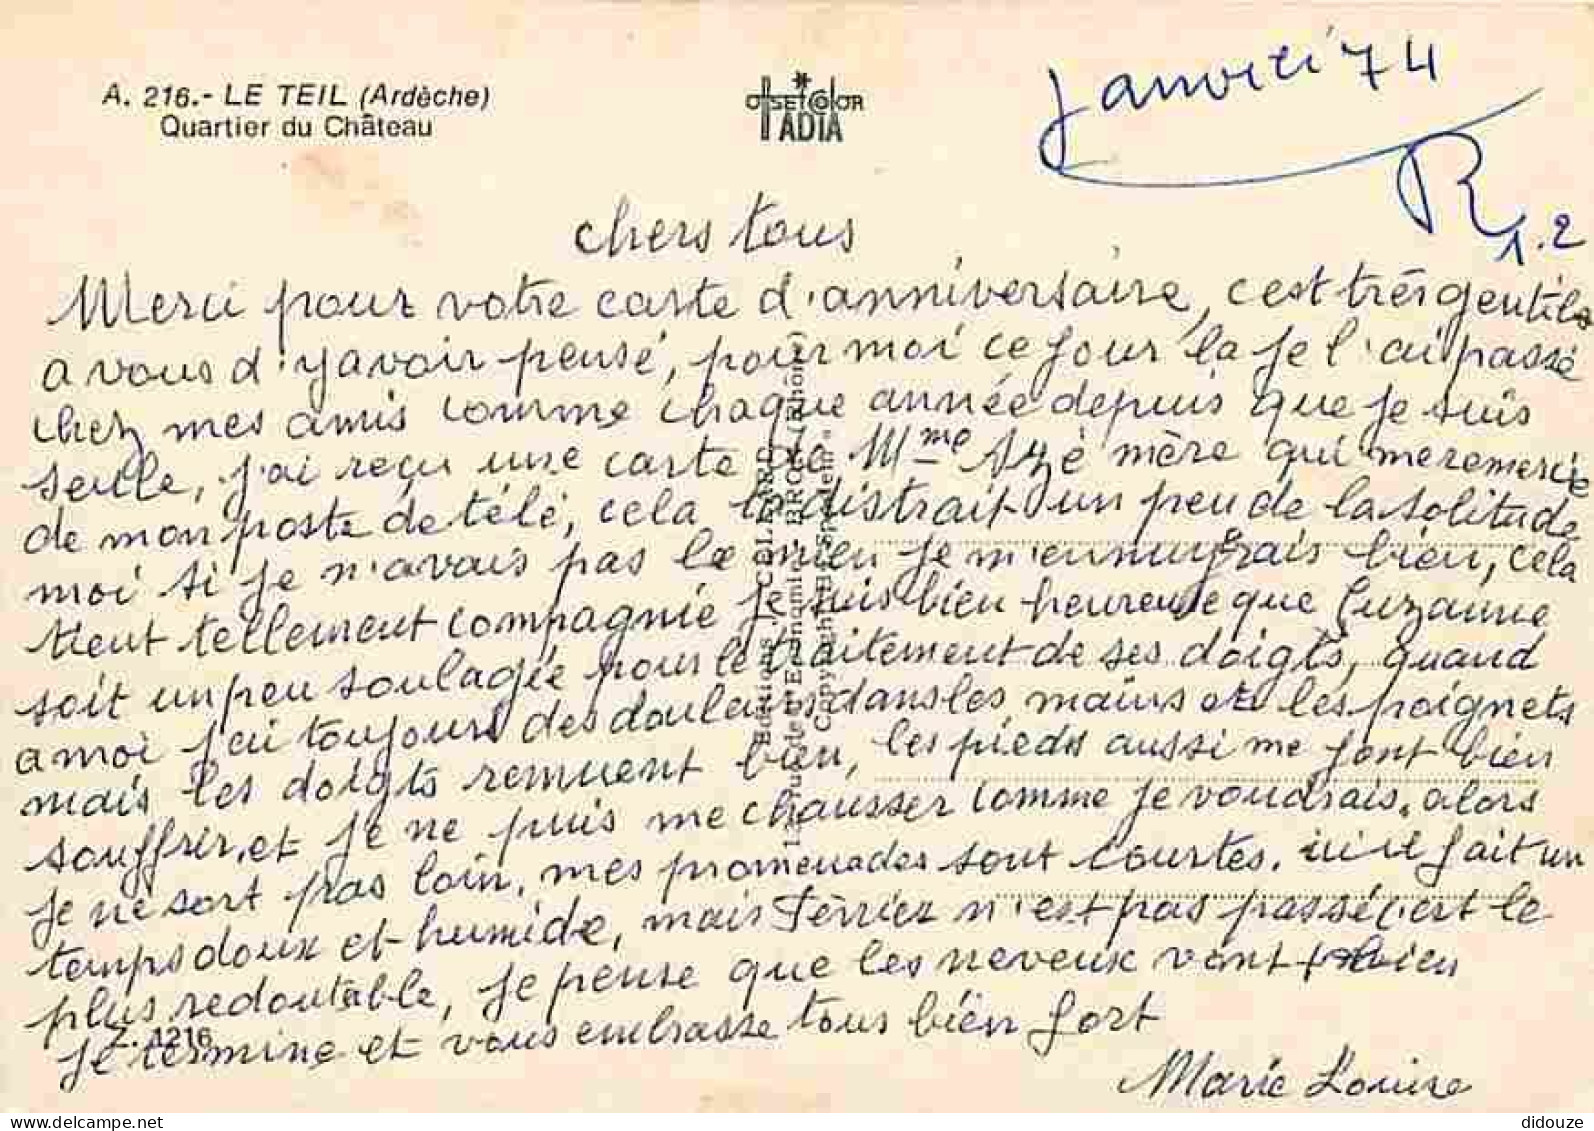 A. 216.- LE TEIL (Ardèche)
Quartier du Château
OFFSET COLOR
IADIA
Janvier 74
R 1.2
chers tous
Merci pour votre carte d'anniversaire, c'est très gentil
a vous d'y avoir pensé, pour moi ce jour la je l'ai passé
chez mes amis comme chaque année depuis que je suis
seule, j'ai reçu une carte de Mme Azè mère qui me remercie
de mon poste de télé, cela la distrait un peu de la solitude
moi si je n'avais pas le mien je m'ennuyerais bien, cela
tient tellement compagnie je suis bien heureuse que Suzanne
soit un peu soulagée pour le traitement de ses doigts, quand
a moi j'ai toujours des douleurs dans les mains et les poignets
mais les doigts remuent bien, les pieds aussi me font bien
souffrir, et je ne puis me chausser comme je voudrais, alors
je ne sort pas loin, mes promenades sont courtes. ici il fait un
temps doux et humide, mais Février n'est pas passé c'est le
plus redoutable, je pense que les neveux vont bien
je termine et vous embrasse tous bien fort
Marie Louise
Z. 1216
Editions J. CELLARD
rue de l'Economie - BRON (Rhône)
Copyright
didouze